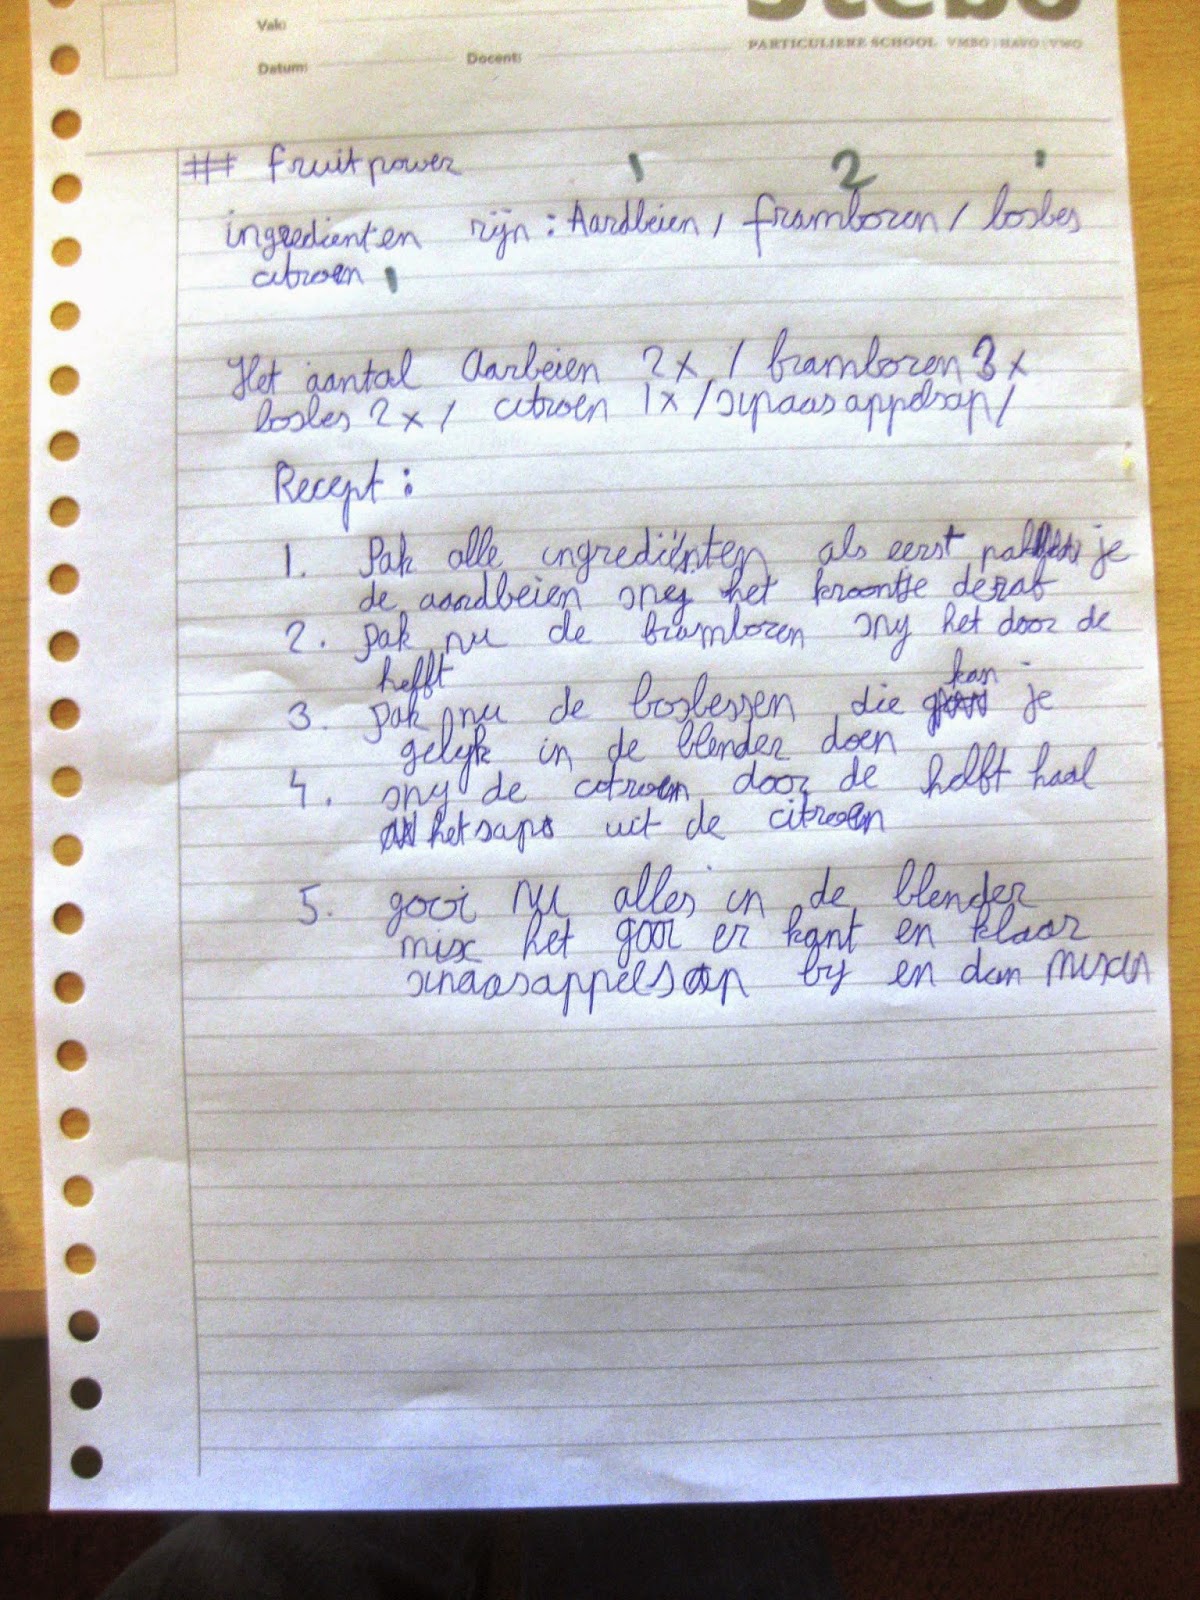 Stebo
Vak:
PARTICULIERE SCHOOL VMBO | HAVO | VWO
Datum: Docent:
## fruitpower 1 2 1
ingredienten zijn: Aardbeien / frambozen / bosbes
citroen 1
Het aantal Aarbeien 2x / frambozen 3x
bosbes 2x / citroen 1x / sinaasappelsap /
Recept:
1. Pak alle ingrediënten als eerst pak je
de aardbeien snij het kroontje deraf
2. pak nu de frambozen snij het door de
helft
kan
3. pak nu de bosbessen die je
gelijk in de blender doen
4. snij de citroen door de helft haal
het sap uit de citroen
5. gooi nu alles in de blender
mix het gooi er kant en klaar
sinaasappelsap bij en dan mixen